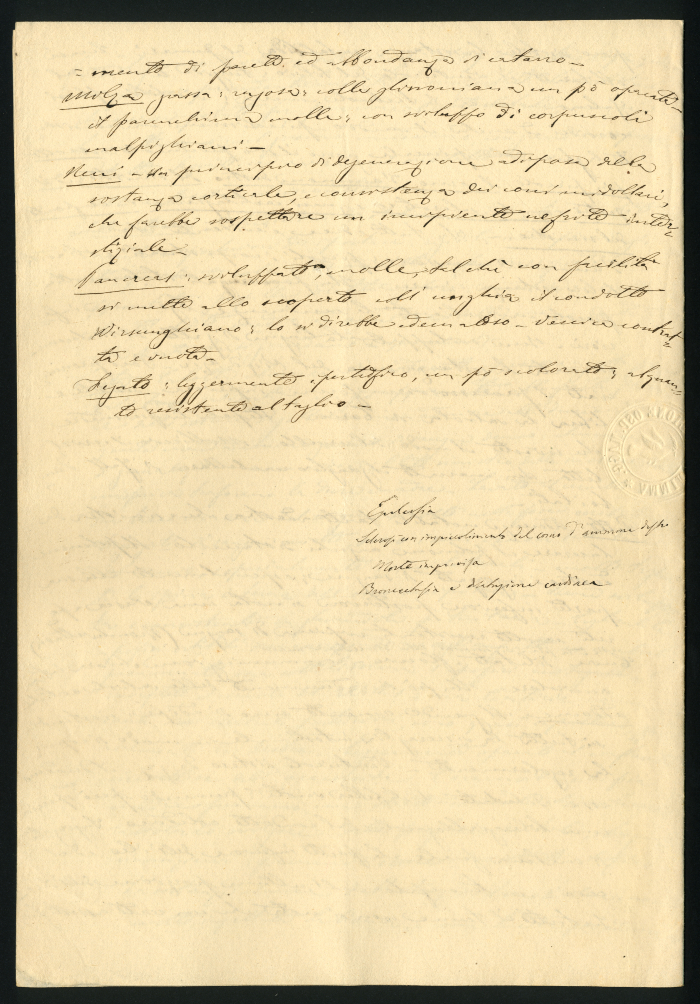 = mento di pareti ed abbondanza di catarro —
Milza grassa; rugosa; colla glissoniana un pò opacata —
il parenchima molle; con sviluppo di corpuscoli
malpighiani —
Reni — Un principio di degenerazione adiposa della
sostanza corticale, e consistenza dei coni midollari,
che farebbe sospettare un incipiente nefrite inter=
stiziale —
Pancreas: sviluppato, molle, talchè con facilità
si mette allo scoperto coll' unghia il condotto
Wirsunghiano; lo si direbbe edematoso — Vescica contrat=
ta e vuota —
Fegato: leggermente, un pò scolorato; alquan=
to resistente al taglio —
Epilessia
Sclerosi con impicciolimento del corno d'ammone destro
Morte improvvisa
Bronectasia e dilatazione cardiaca